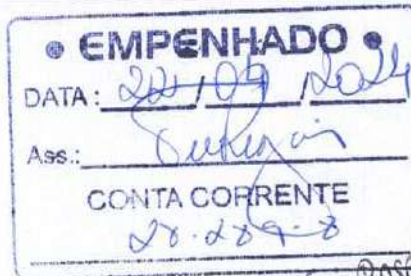 • EMPENHADO •
DATA: 22/09/2024
Ass.:
CONTA CORRENTE
28.289-8